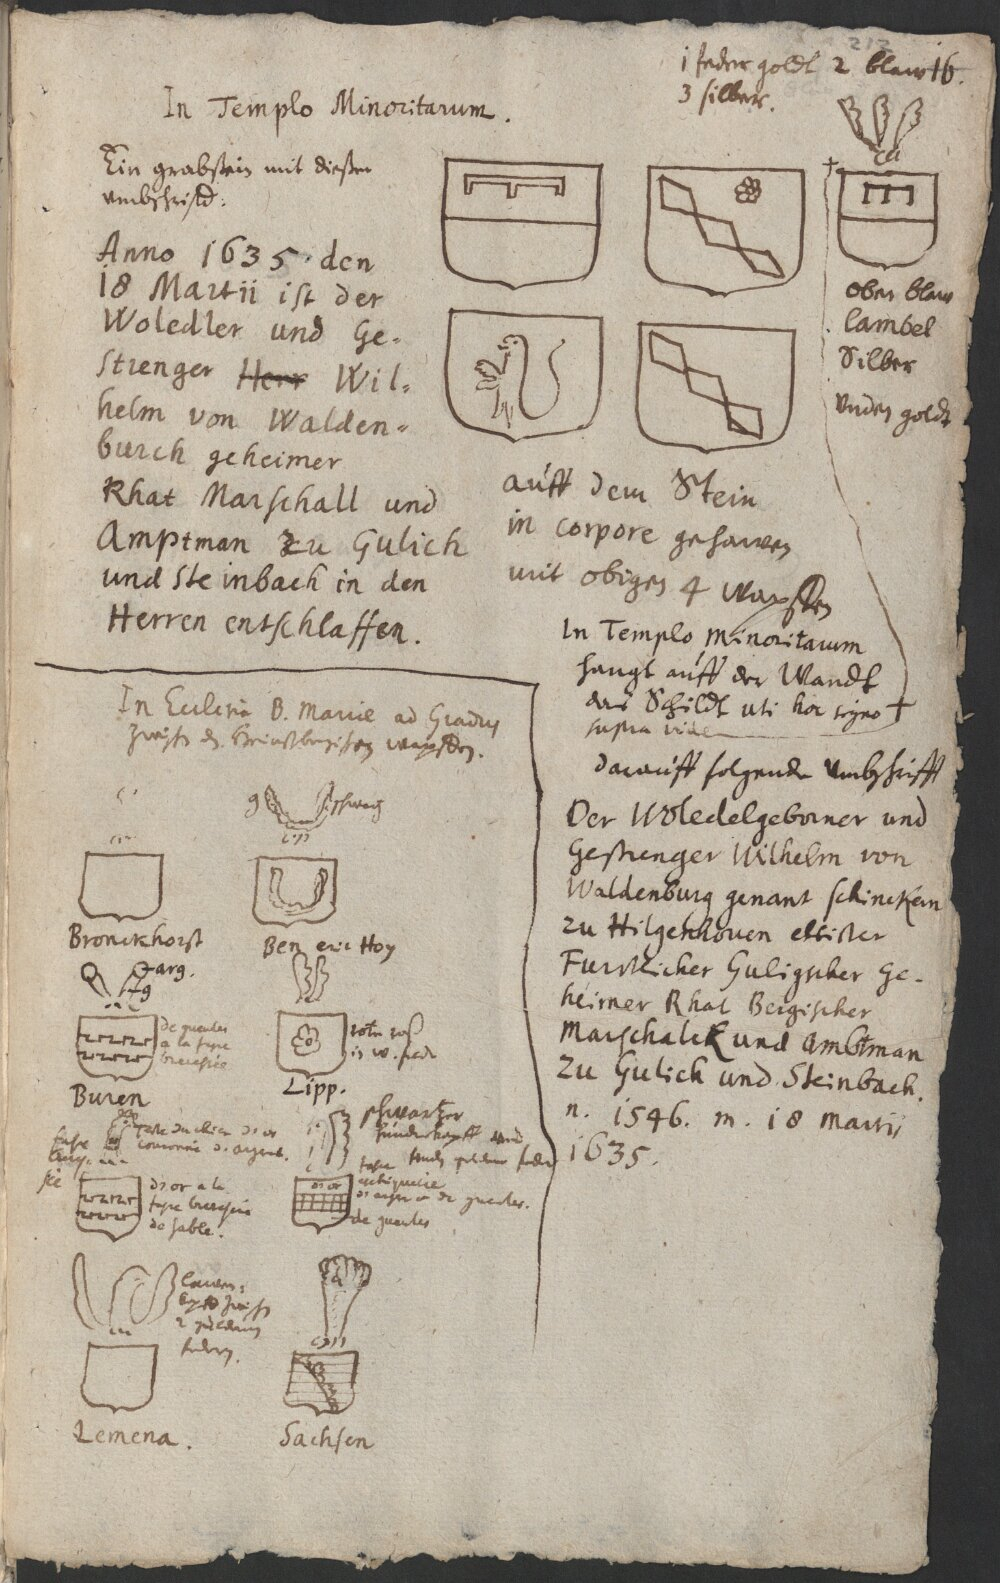 212
1 feder goldt 2 blaw 16.
3 silber.
In Templo Minoritarum.
Ein grabstein mit diesser
umbschrifd:
Anno 1635 den
18 Martii ist der
Woledler und Ge-
strenger Herr Wil-
helm von Walden-
burch geheimer
Rhat Marschall und
Amptman zu Gulich
und Steinbach in den
Herren entschlaffen.
oben blaw
lambel
Silber
unden goldt
auff dem Stein
in corpore gehawen
mit obigen 4 wapffen
In Templo Minoritarum
hangt auff der Wandt
das Schildt uti hoc signo +
supra vide
darauff folgende umbschrifft
Der Woledelgeborner und
Gestrenger Wilhelm von
Waldenburg genant schinckern
zu Hilgenhoven eltister
Furstlicher Guligscher Ge-
heimer Rhat Bergischer
Marschalck und Ambtman
zu Gulich und Steinbach.
n. 1546. m. 18 Martii
1635.
In Eclesia B. Mariae ad Gradus
wapffen.
g schwartz
Bronckhorst
Ben eric Hoy
arg.
g
de gueules
a la fasce
brecessée
rote ros
in w.
Buren
Lipp.
schwartzer
fasce
d'or a la
fasce
de sable.
d'or
fasce
de gueules.
de gueules
lawen
2 guldenen
federn.
Lemena.
Sachsen